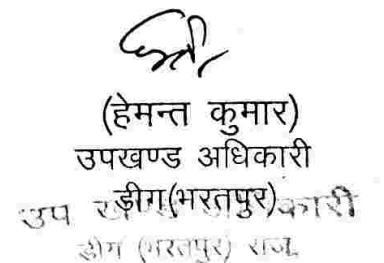 (हेमन्त कुमार)
उपखण्ड अधिकारी
डीग(भरतपुर)
उप खण्ड अधिकारी
डीग (भरतपुर) राज.